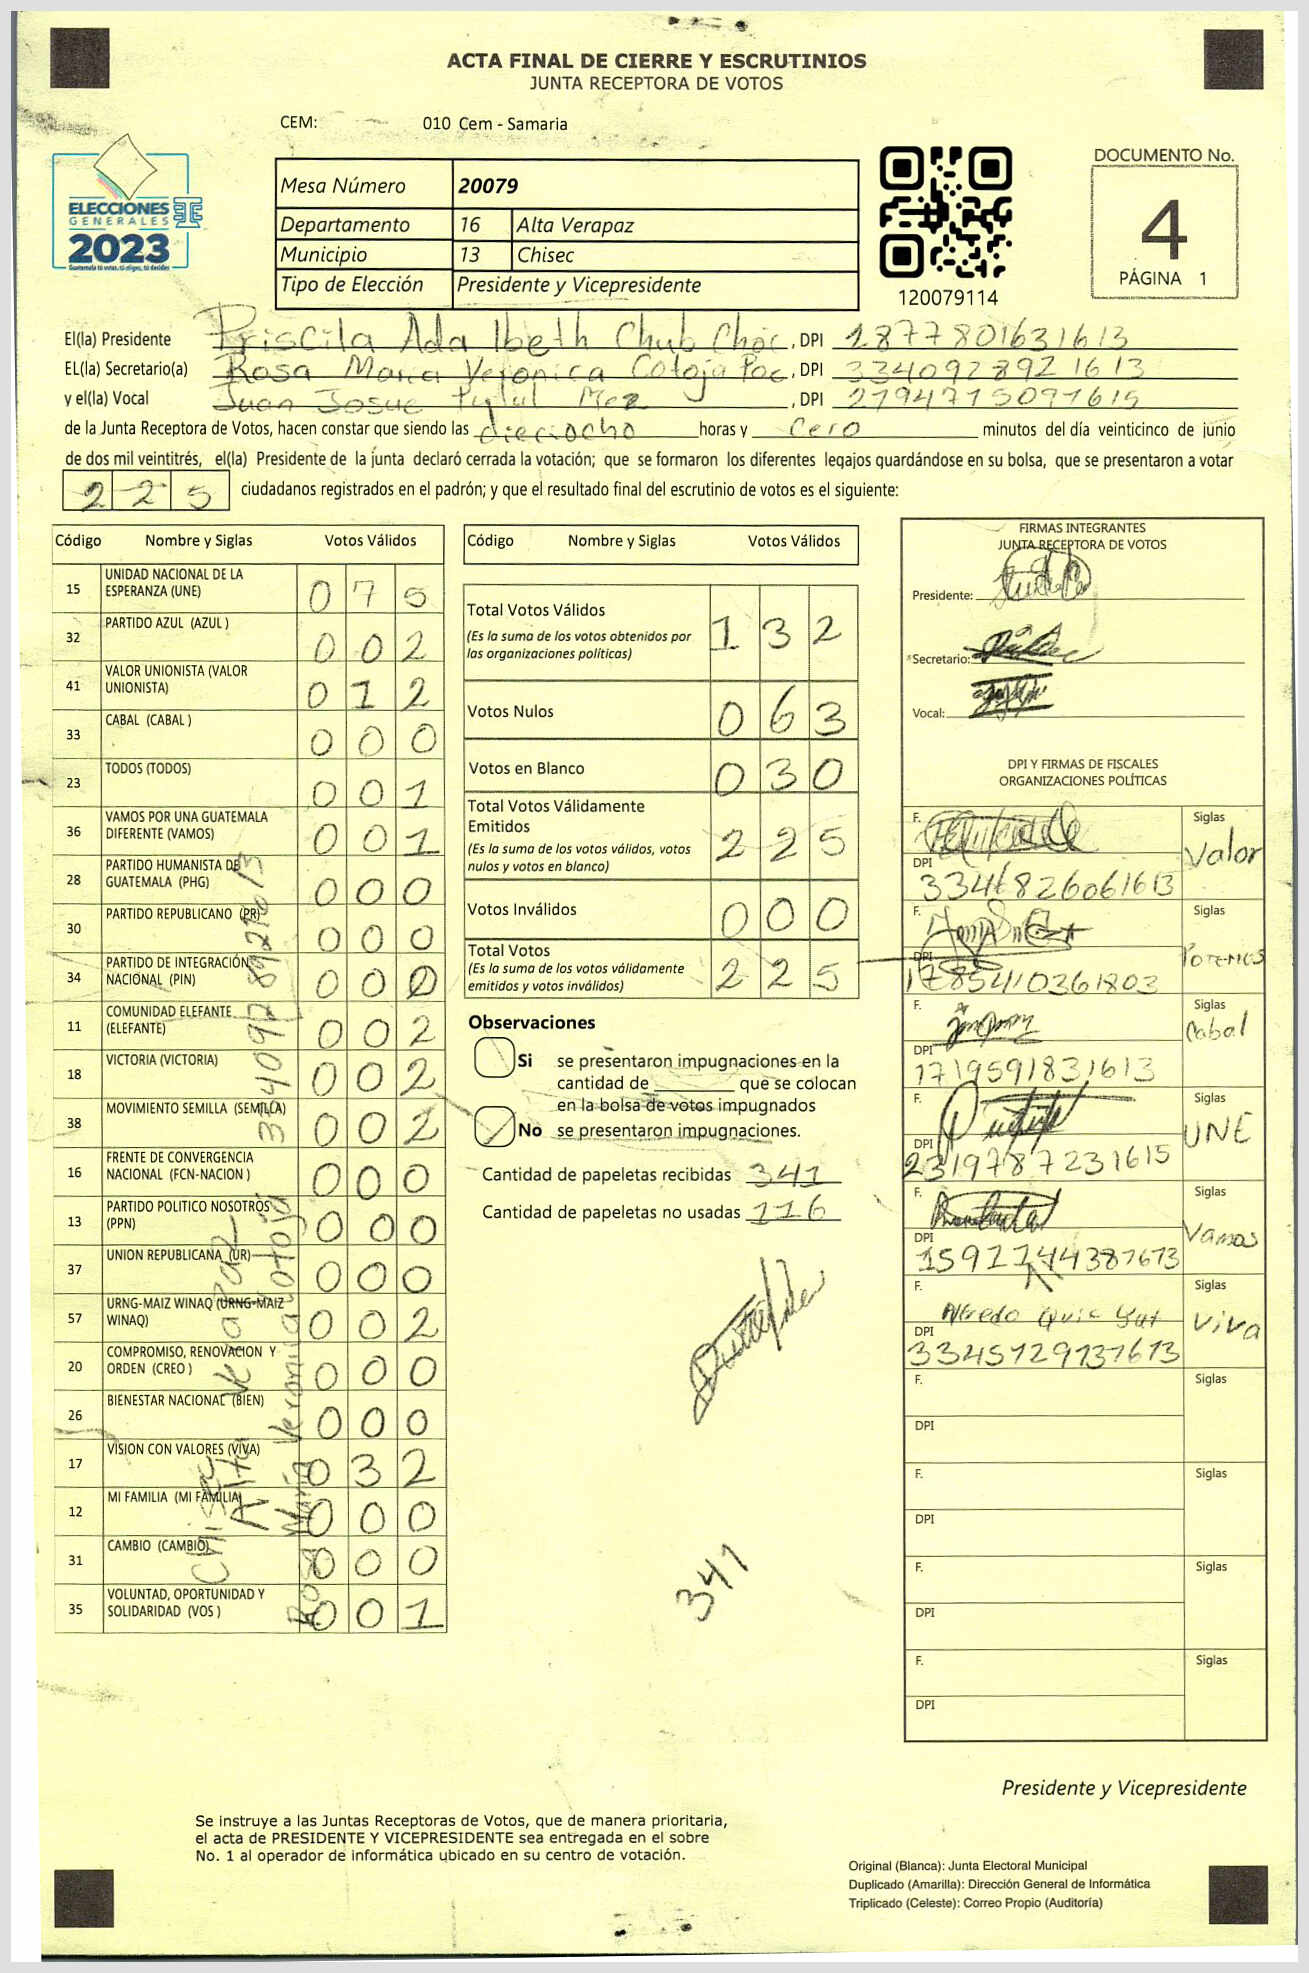 ACTA FINAL DE CIERRE Y ESCRUTINIOS
JUNTA RECEPTORA DE VOTOS
CEM: 010 Cem - Samaria
ELECCIONES
GENERALES
2023
Guatemala tú votas, tú eliges, tú decides
Mesa Número 20079
Departamento 16 Alta Verapaz
Municipio 13 Chisec
Tipo de Elección Presidente y Vicepresidente
120079114
DOCUMENTO No.
4
PÁGINA 1
El(la) Presidente Priscila Ada Ibeth Chub Choc, DPI 1877801631613
EL(la) Secretario(a) Rosa Maria Veronica Cotoja Poc, DPI 3340928921613
y el(la) Vocal Juan Josue Mez, DPI 2794715091615
de la Junta Receptora de Votos, hacen constar que siendo las dieciocho horas y cero minutos del día veinticinco de junio
de dos mil veintitrés, el(la) Presidente de la junta declaró cerrada la votación; que se formaron los diferentes legajos quardándose en su bolsa, que se presentaron a votar
225 ciudadanos registrados en el padrón; y que el resultado final del escrutinio de votos es el siguiente:
Código Nombre y Siglas Votos Válidos
15 UNIDAD NACIONAL DE LA ESPERANZA (UNE) 075
32 PARTIDO AZUL (AZUL ) 002
41 VALOR UNIONISTA (VALOR UNIONISTA) 012
33 CABAL (CABAL ) 000
23 TODOS (TODOS) 001
36 VAMOS POR UNA GUATEMALA DIFERENTE (VAMOS) 001
28 PARTIDO HUMANISTA DE GUATEMALA (PHG) 000
30 PARTIDO REPUBLICANO (PR) 000
34 PARTIDO DE INTEGRACIÓN NACIONAL (PIN) 000
11 COMUNIDAD ELEFANTE (ELEFANTE) 002
18 VICTORIA (VICTORIA) 002
38 MOVIMIENTO SEMILLA (SEMILLA) 002
16 FRENTE DE CONVERGENCIA NACIONAL (FCN-NACION ) 000
13 PARTIDO POLITICO NOSOTROS (PPN) 000
37 UNION REPUBLICANA (UR) 000
57 URNG-MAIZ WINAQ (URNG-MAIZ WINAQ) 002
20 COMPROMISO, RENOVACION Y ORDEN (CREO ) 000
26 BIENESTAR NACIONAL (BIEN) 000
17 VISION CON VALORES (VIVA) 032
12 MI FAMILIA (MI FAMILIA) 000
31 CAMBIO (CAMBIO) 000
35 VOLUNTAD, OPORTUNIDAD Y SOLIDARIDAD (VOS ) 001
Chisec Alta Verapaz
Rosa María Veronica Cotojá
3340928921613
Código Nombre y Siglas Votos Válidos
Total Votos Válidos 132
(Es la suma de los votos obtenidos por
las organizaciones políticas)
Votos Nulos 063
Votos en Blanco 030
Total Votos Válidamente
Emitidos 225
(Es la suma de los votos válidos, votos
nulos y votos en blanco)
Votos Inválidos 000
Total Votos 225
(Es la suma de los votos válidamente
emitidos y votos inválidos)
Observaciones
Si se presentaron impugnaciones en la
cantidad de que se colocan
en la bolsa de votos impugnados
No se presentaron impugnaciones.
Cantidad de papeletas recibidas 341
Cantidad de papeletas no usadas 116
341
FIRMAS INTEGRANTES
JUNTA RECEPTORA DE VOTOS
Presidente:
Secretario:
Vocal:
DPI Y FIRMAS DE FISCALES
ORGANIZACIONES POLÍTICAS
F. Siglas
Valor
DPI
F. Siglas
DPI 1785410361803
F. Siglas
Cabal
DPI 1719591831613
F. Siglas
UNE
DPI 2319787231615
F. Siglas
Vamos
DPI
F. Alfredo Quic Siglas
Viva
DPI 3345129131613
F. Siglas
DPI
F. Siglas
DPI
F. Siglas
DPI
F. Siglas
DPI
Presidente y Vicepresidente
Se instruye a las Juntas Receptoras de Votos, que de manera prioritaria,
el acta de PRESIDENTE Y VICEPRESIDENTE sea entregada en el sobre
No. 1 al operador de informática ubicado en su centro de votación.
Original (Blanca): Junta Electoral Municipal
Duplicado (Amarilla): Dirección General de Informática
Triplicado (Celeste): Correo Propio (Auditoría)